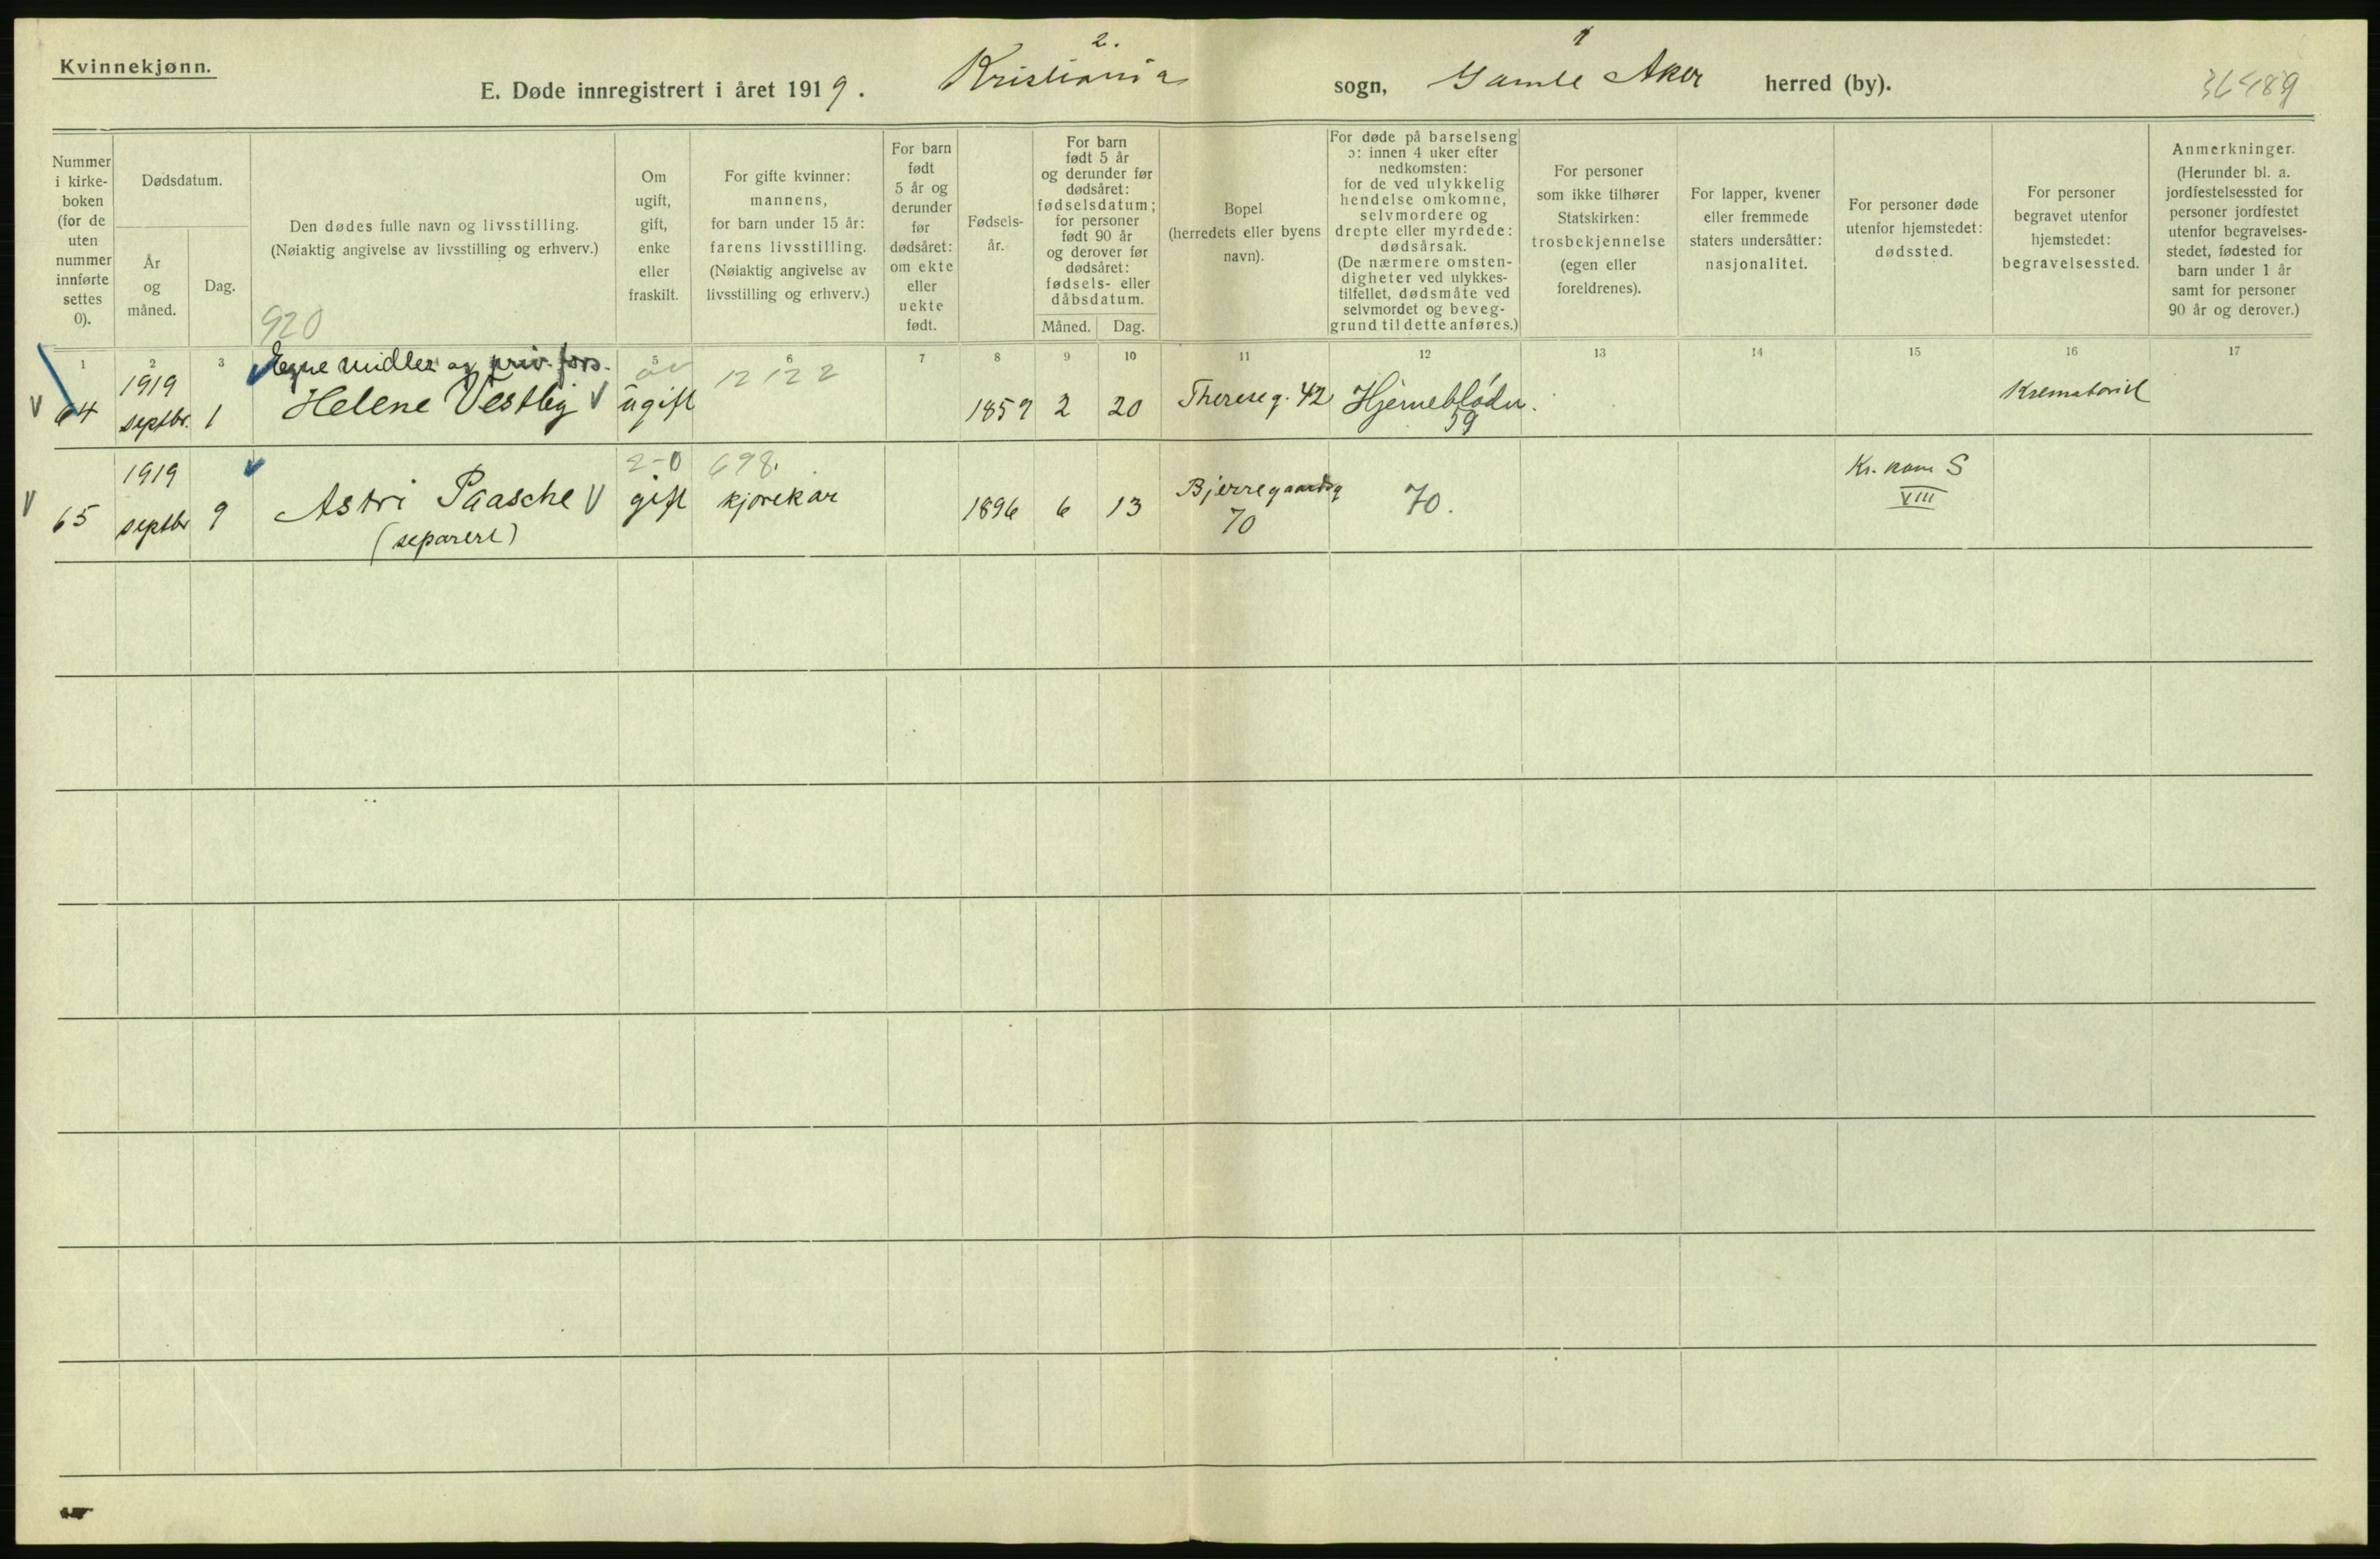 Kvinnekjønn.
E. Døde innregistrert i året 1919. Kristiania 2. sogn, Gamle Aker 1 herred (by). 36489
Nummer i kirke-boken (for de uten nummer innførte settes 0).
Dødsdatum.
År og måned.
Dag.
Den dødes fulle navn og livsstilling.
(Nøiaktig angivelse av livsstilling og erhverv.)
920
Om ugift, gift, enke eller fraskilt.
For gifte kvinner: mannens, for barn under 15 år: farens livsstilling.
(Nøiaktig angivelse av livsstilling og erhverv.)
For barn født 5 år og derunder før dødsåret: om ekte eller uekte født.
Fødsels-år.
For barn født 5 år og derunder før dødsåret: fødselsdatum; for personer født 90 år og derover før dødsåret: fødsels- eller dåbsdatum.
Måned.
Dag.
Bopel (herredets eller byens navn).
For døde på barselseng ɔ: innen 4 uker efter nedkomsten: for de ved ulykkelig hendelse omkomne, selvmordere og drepte eller myrdede: dødsårsak.
(De nærmere omsten-digheter ved ulykkes-tilfellet, dødsmåte ved selvmordet og beveg-grund til dette anføres.)
For personer som ikke tilhører Statskirken: trosbekjennelse (egen eller foreldrenes).
For lapper, kvener eller fremmede staters undersåtter: nasjonalitet.
For personer døde utenfor hjemstedet: dødssted.
For personer begravet utenfor hjemstedet: begravelsessted.
Anmerkninger.
(Herunder bl. a. jordfestelsessted for personer jordfestet utenfor begravelses-stedet, fødested for barn under 1 år samt for personer 90 år og derover.)
1 2 3 5 6 7 8 9 10 11 12 13 14 15 16 17
Egne midler og priv. fors. 12 12 2
V 64 1919 septbr. 1 Helene Vestby V ugift 1859 2 20 Therese g. 42 Hjerneblødn. 59 Krematoriet
2-0 698.
V 65 1919 septbr 9 Astri Paasche V gift kjørekar 1896 6 13 Bjerregaardsg 70 70. Kr. kom S VIII
(separert)